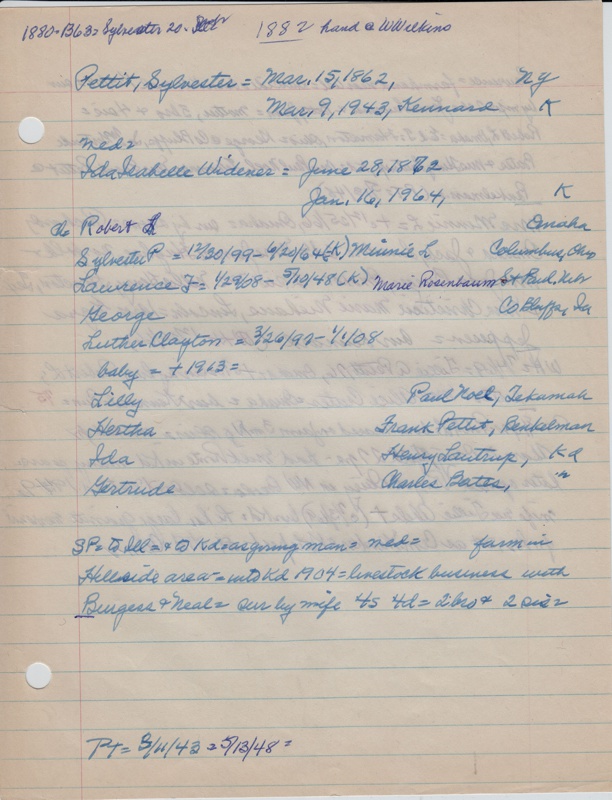 1880 = B63 = Sylvester 20 = 1882 hand @ W Wilkins
Pettit, Sylvester = Mar. 15, 1862, Ny
Mar, 9, 1943, Kennard K
med =
Ida Isabelle Widener = June 28, 1872
Jan. 16, 1964, K
ch Robert L Omaha
Sylvester P = 12/30/99 - 6/20/64 (K) Minnie L Columbus, Ohio
Lawrence J = 1/29/08 - 5/10/48 (K) Marie Rosenbaum St Paul, Nebr
George Co Bluffs, Ia
Luther Clayton = 3/26/97 - 1/1/08
baby = + 1903 =
Lilly Paul Noel, Tekamah
Hertha Frank Pettit, Benkelman
Ida Henry Lautrup, Kd
Gertrude Charles Bates, "
SP = to Ill = + to Kd = as young man = med = farm in
Hillside area = into Kd 1904 = livestock business with
Burgess & Neal = sur by wife 4s 4d = 2 bro & 2 sis =
PT = 3/11/43 = 5/13/48 =